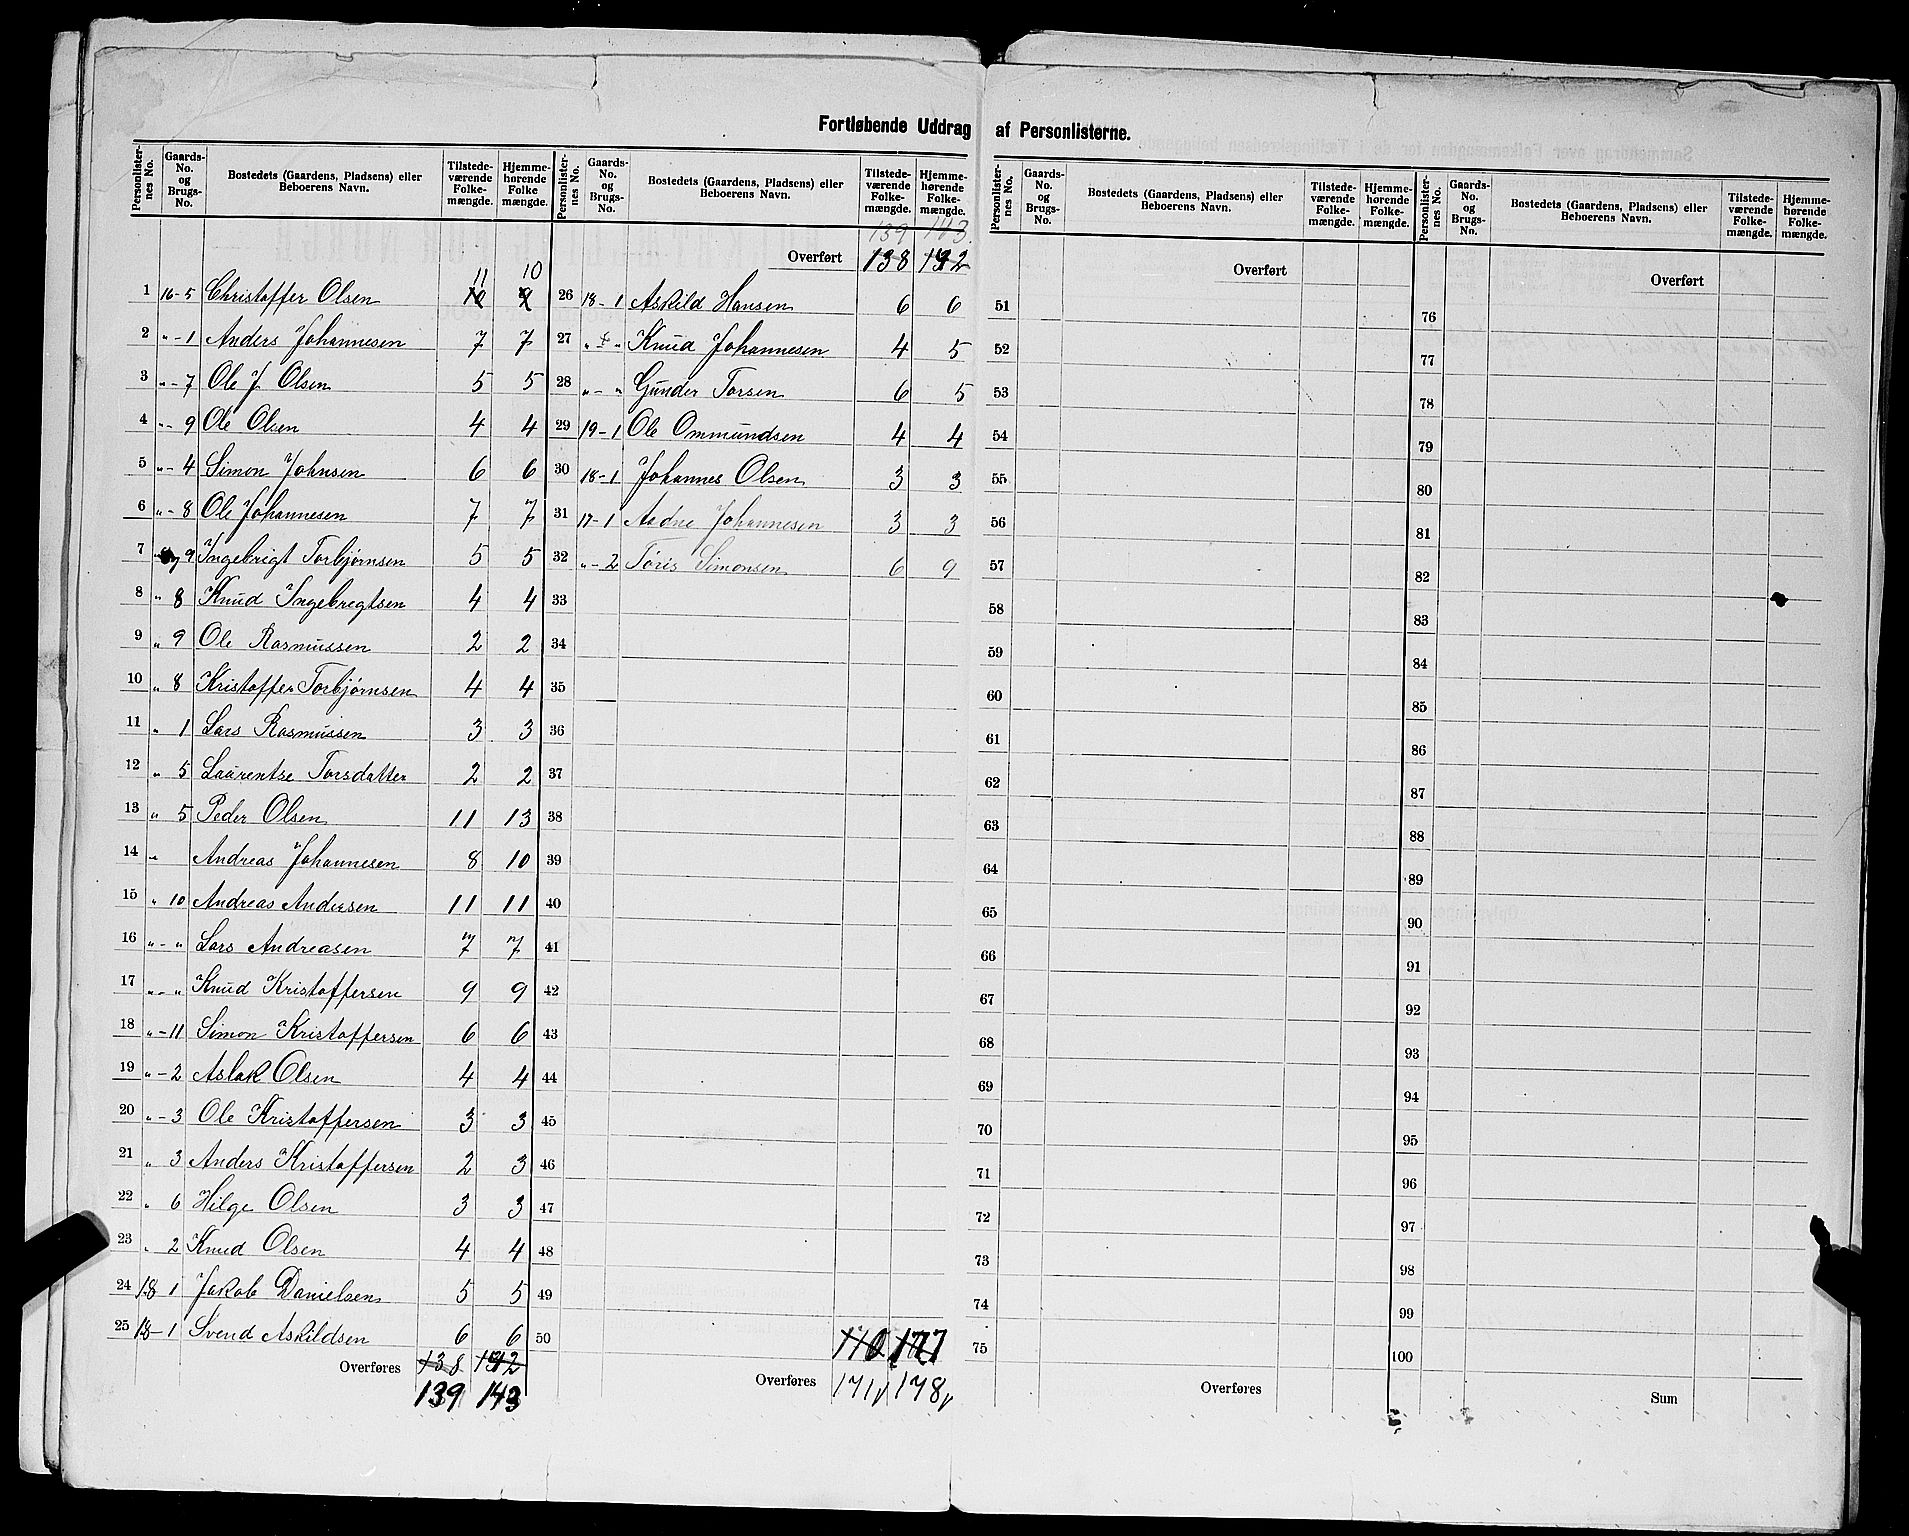 Fortløbende Uddrag af Personlisterne.
Personlisternes No. | Gaards-No. og Brugs-No. | Bostedets (Gaardens, Pladsens) eller Beboerens Navn. | Tilstedeværende Folkemængde. | Hjemmehørende Folkemængde.
1 16-5 Christoffer Olsen 11 10
2 „-1 Anders Johannesen 7 7
3 „-7 Ole J. Olsen 5 5
4 „-9 Ole Olsen 4 4
5 „-4 Simon Johnsen 6 6
6 „-8 Ole Johannesen 7 7
7 „ 9 Ingebrigt Torbjørnsen 5 5
8 „ 8 Knud Ingebregtsen 4 4
9 „ 9 Ole Rasmussen 2 2
10 „ 8 Kristoffer Torbjørnsen 4 4
11 „ 1 Lars Rasmussen 3 3
12 „ 5 Laurentse Torsdatter 2 2
13 „ 5 Peder Olsen 11 13
14 „ Andreas Johannesen 8 10
15 „ 10 Andreas Andersen 11 11
16 „-„ Lars Andreasen 7 7
17 „-„ Knud Kristoffersen 9 9
18 „-11 Simon Kristoffersen 6 6
19 „-2 Aslak Olsen 4 4
20 „-3 Ole Kristoffersen 3 3
21 „ 3 Anders Kristoffersen 2 3
22 „ 6 Hilge Olsen 3 3
23 „ 2 Knud Olsen 4 4
24 18 1 Jakob Danielsen 5 5
25 18-1 Svend Askildsen 6 6
Overføres 138 142
139 143
Personlisternes No. | Gaards-No. og Brugs-No. | Bostedets (Gaardens, Pladsens) eller Beboerens Navn. | Tilstedeværende Folkemængde. | Hjemmehørende Folkemængde.
139 143
Overført 138 142
26 18-1 Askild Hansen 6 6
27 „ „ Knud Johannesen 4 5
28 „-„ Gunder Torsen 6 5
29 19-1 Ole Ommundsen 4 4
30 18-1 Johannes Olsen 3 3
31 17-1 Aadne Johannesen 3 3
32 „-2 Toris Simonsen 6 9
33
34
35
36
37
38
39
40
41
42
43
44
45
46
47
48
49
50 170 177
Overføres 171 178
Personlisternes No. | Gaards-No. og Brugs-No. | Bostedets (Gaardens, Pladsens) eller Beboerens Navn. | Tilstedeværende Folkemængde. | Hjemmehørende Folkemængde.
Overført
51
52
53
54
55
56
57
58
59
60
61
62
63
64
65
66
67
68
69
70
71
72
73
74
75
Overføres
Personlisternes No. | Gaards-No. og Brugs-No. | Bostedets (Gaardens, Pladsens) eller Beboerens Navn. | Tilstedeværende Folkemængde. | Hjemmehørende Folkemængde.
Overført
76
77
78
79
80
81
82
83
84
85
86
87
88
89
90
91
92
93
94
95
96
97
98
99
100
Sum